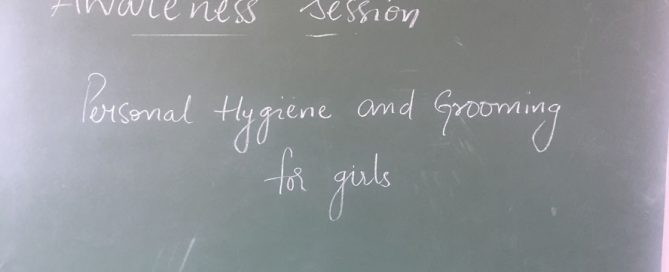 Awareness Session
Personal Hygiene and Grooming
for girls